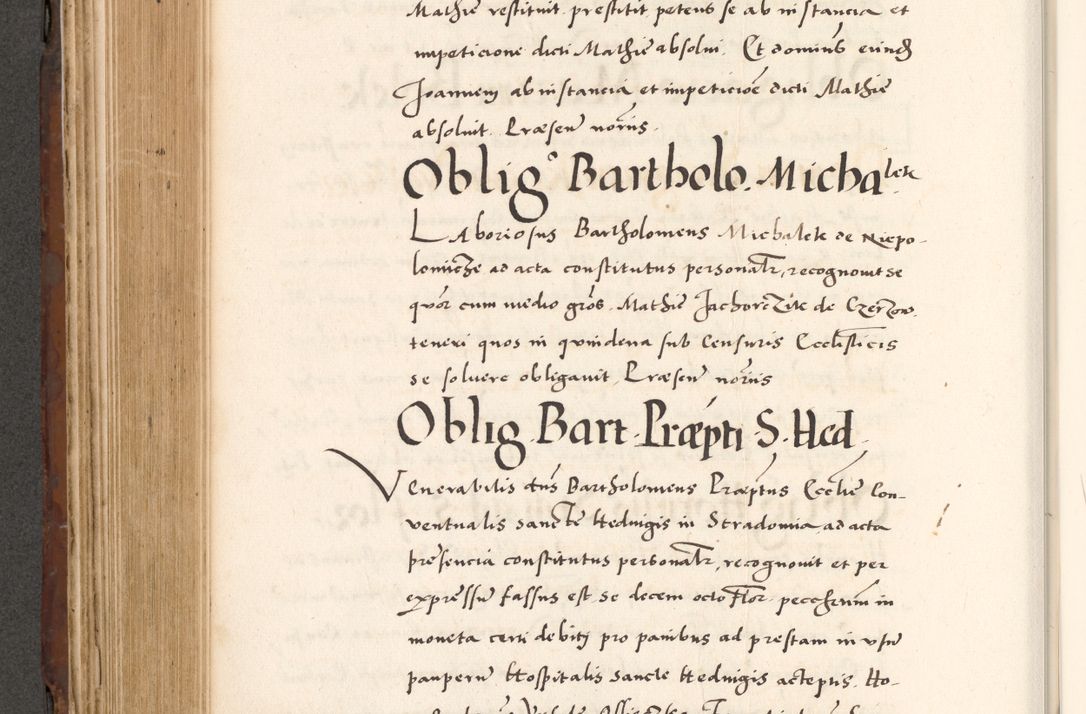 Mathie restituit prestitit petens se ab instancia et
impeticione dicti Mathie absolui. Et dominus eund
Joannem ab instancia et impeticioe dicti Mathie
absoluit. Præsen norijs.
Oblig° Bartholo. Michalek.
Laboriosus Bartholomeus Michalek de Niepo-
lomicze ad acta constitutus personalr, recognouit se
quor cum medio gros. Mathie Jachorczik de Czerzow.
teneri quos in quindena sub Censuris Ecclisticis
se soluere obligauit, Præsen norijs
Oblig. Bart. Præpti S. Hed.
Venerabilis dns Bartholomeus Præptus Ecclie Con-
uentualis sancte Heduigis in Stradomia ad acta
presencia constitutus personalr, recognouit et per
expressu fassus est se decem octo Flor. pecchrum in
moneta certi debiti pro panibus ad prestam in vsu
pauperu Hospitalis sancte Heduigis acteptis. Ho-